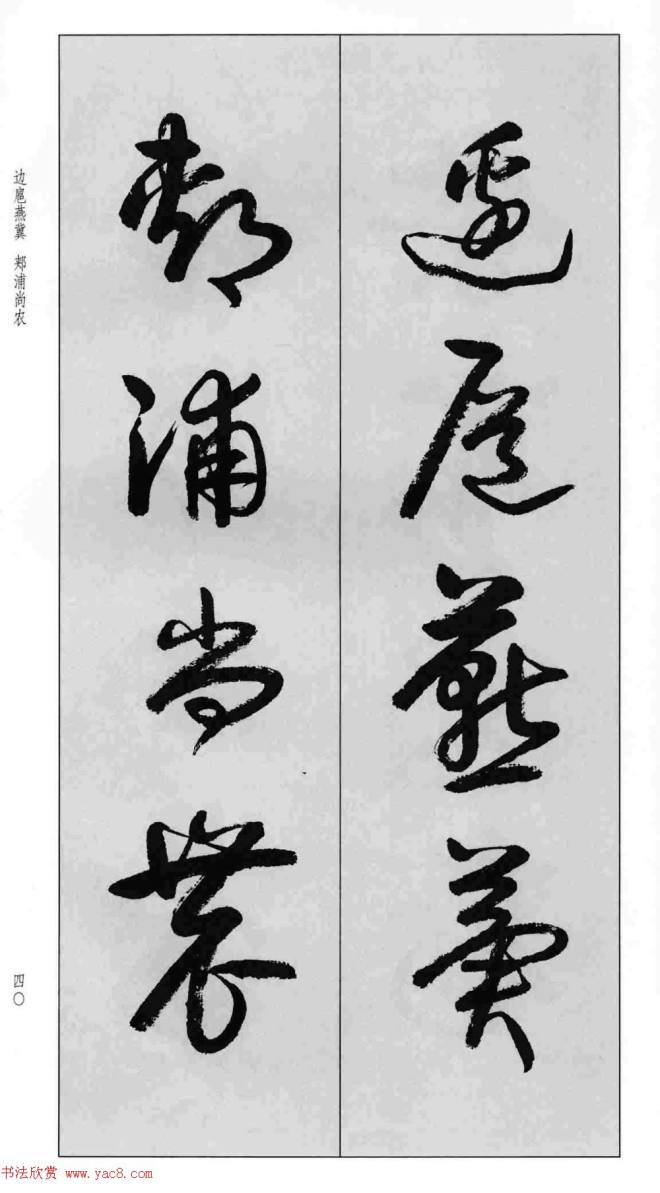 邊扈燕冀
郟浦尚農
边扈燕冀 郏浦尚农
四〇
书法欣赏 www.yac8.com